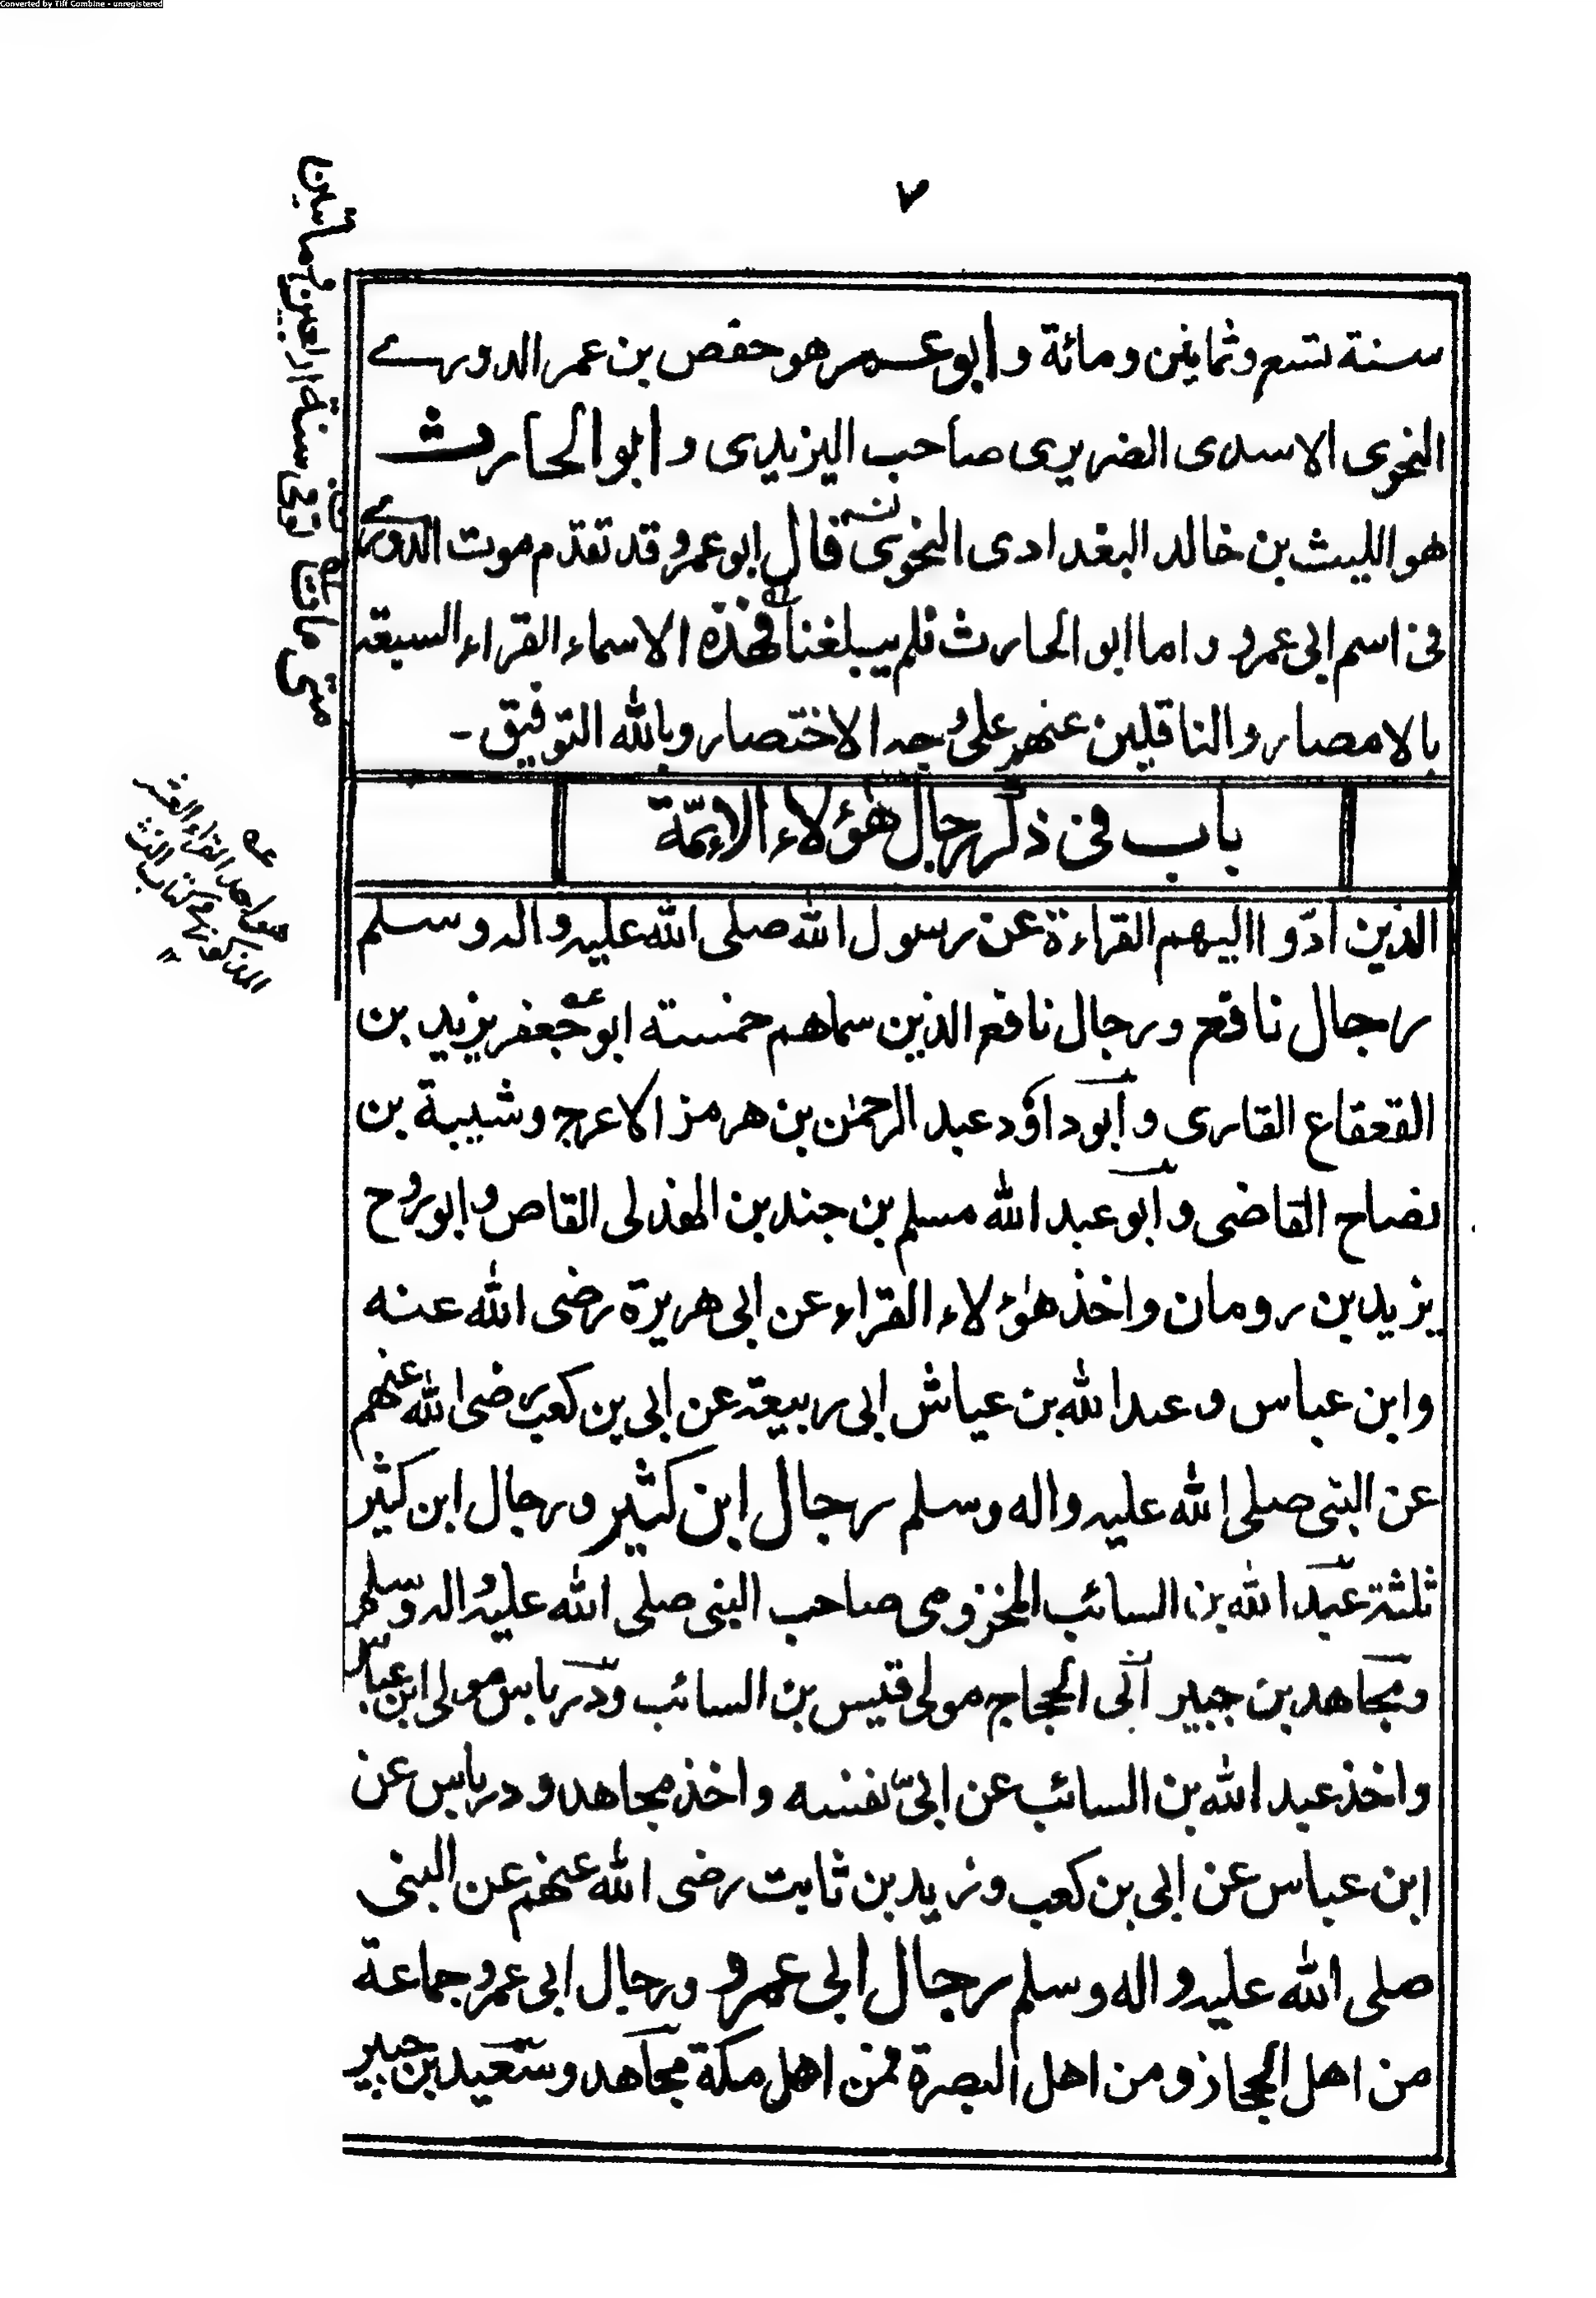 Converted by Tiff Combine - unregistered
٧
سنة تسع وثمانين ومائة وابو عمر هو حفص بن عمر الدورے
النحوى الاسدى الضريرى صاحب اليزيدى وابو الحارث
هو الليث بن خالد البغدادى النحوى قال ابو عمرو قد تقدم موت الدورے
فى اسم ابى عمرو واما ابو الحارث فلم يبلغنا فهذه الاسماء القراء السبعة
بالامصار والناقلين عنهم على وجه الاختصار وبالله التوفيق -
باب فى ذكر رجال هٰؤلاء الائمّة
الذين ادّوا اليهم القراءة عن رسول الله صلى الله عليه واله وسلم
رجال نافع ورجال نافع الذين سماهم خمسة ابو جعفر يزيد بن
القعقاع القارى وابو داؤد عبد الرحمٰن بن هرمز الاعرج وشيبة بن
نصاح القاضى وابو عبد الله مسلم بن جندبن الهذلى القاص وابو روح
يزيد بن رومان واخذ هٰؤلاء القراء عن ابى هريرة رضى الله عنه
وابن عباس وعبد الله بن عياش ابى ربيعة عن ابى بن كعب رضى الله عنهم
عن النبى صلى الله عليه واله وسلم رجال ابن كثير ورجال ابن كثير
ثلثة عبد الله بن السائب المخزومى صاحب النبى صلى الله عليه واله وسلم
ومجاهد بن جبير ابى الحجاج مولى قيس بن السائب ودرباس مولى ابن عباس
واخذ عبد الله بن السائب عن ابىّ نفسه واخذ مجاهد ودرباس عن
ابن عباس عن ابى بن كعب وزيد بن ثابت رضى الله عنهم عن النبى
صلى الله عليه واله وسلم رجال ابى عمرو ورجال ابى عمرو جماعة
من اهل الحجاز ومن اهل البصرة فمن اهل مكة مجاهد وسعيد بن جبير
متى مات توفى سنة اربعين ومائتين
عه
هو احد القراء العشر
المذكور فى كتاب النشر